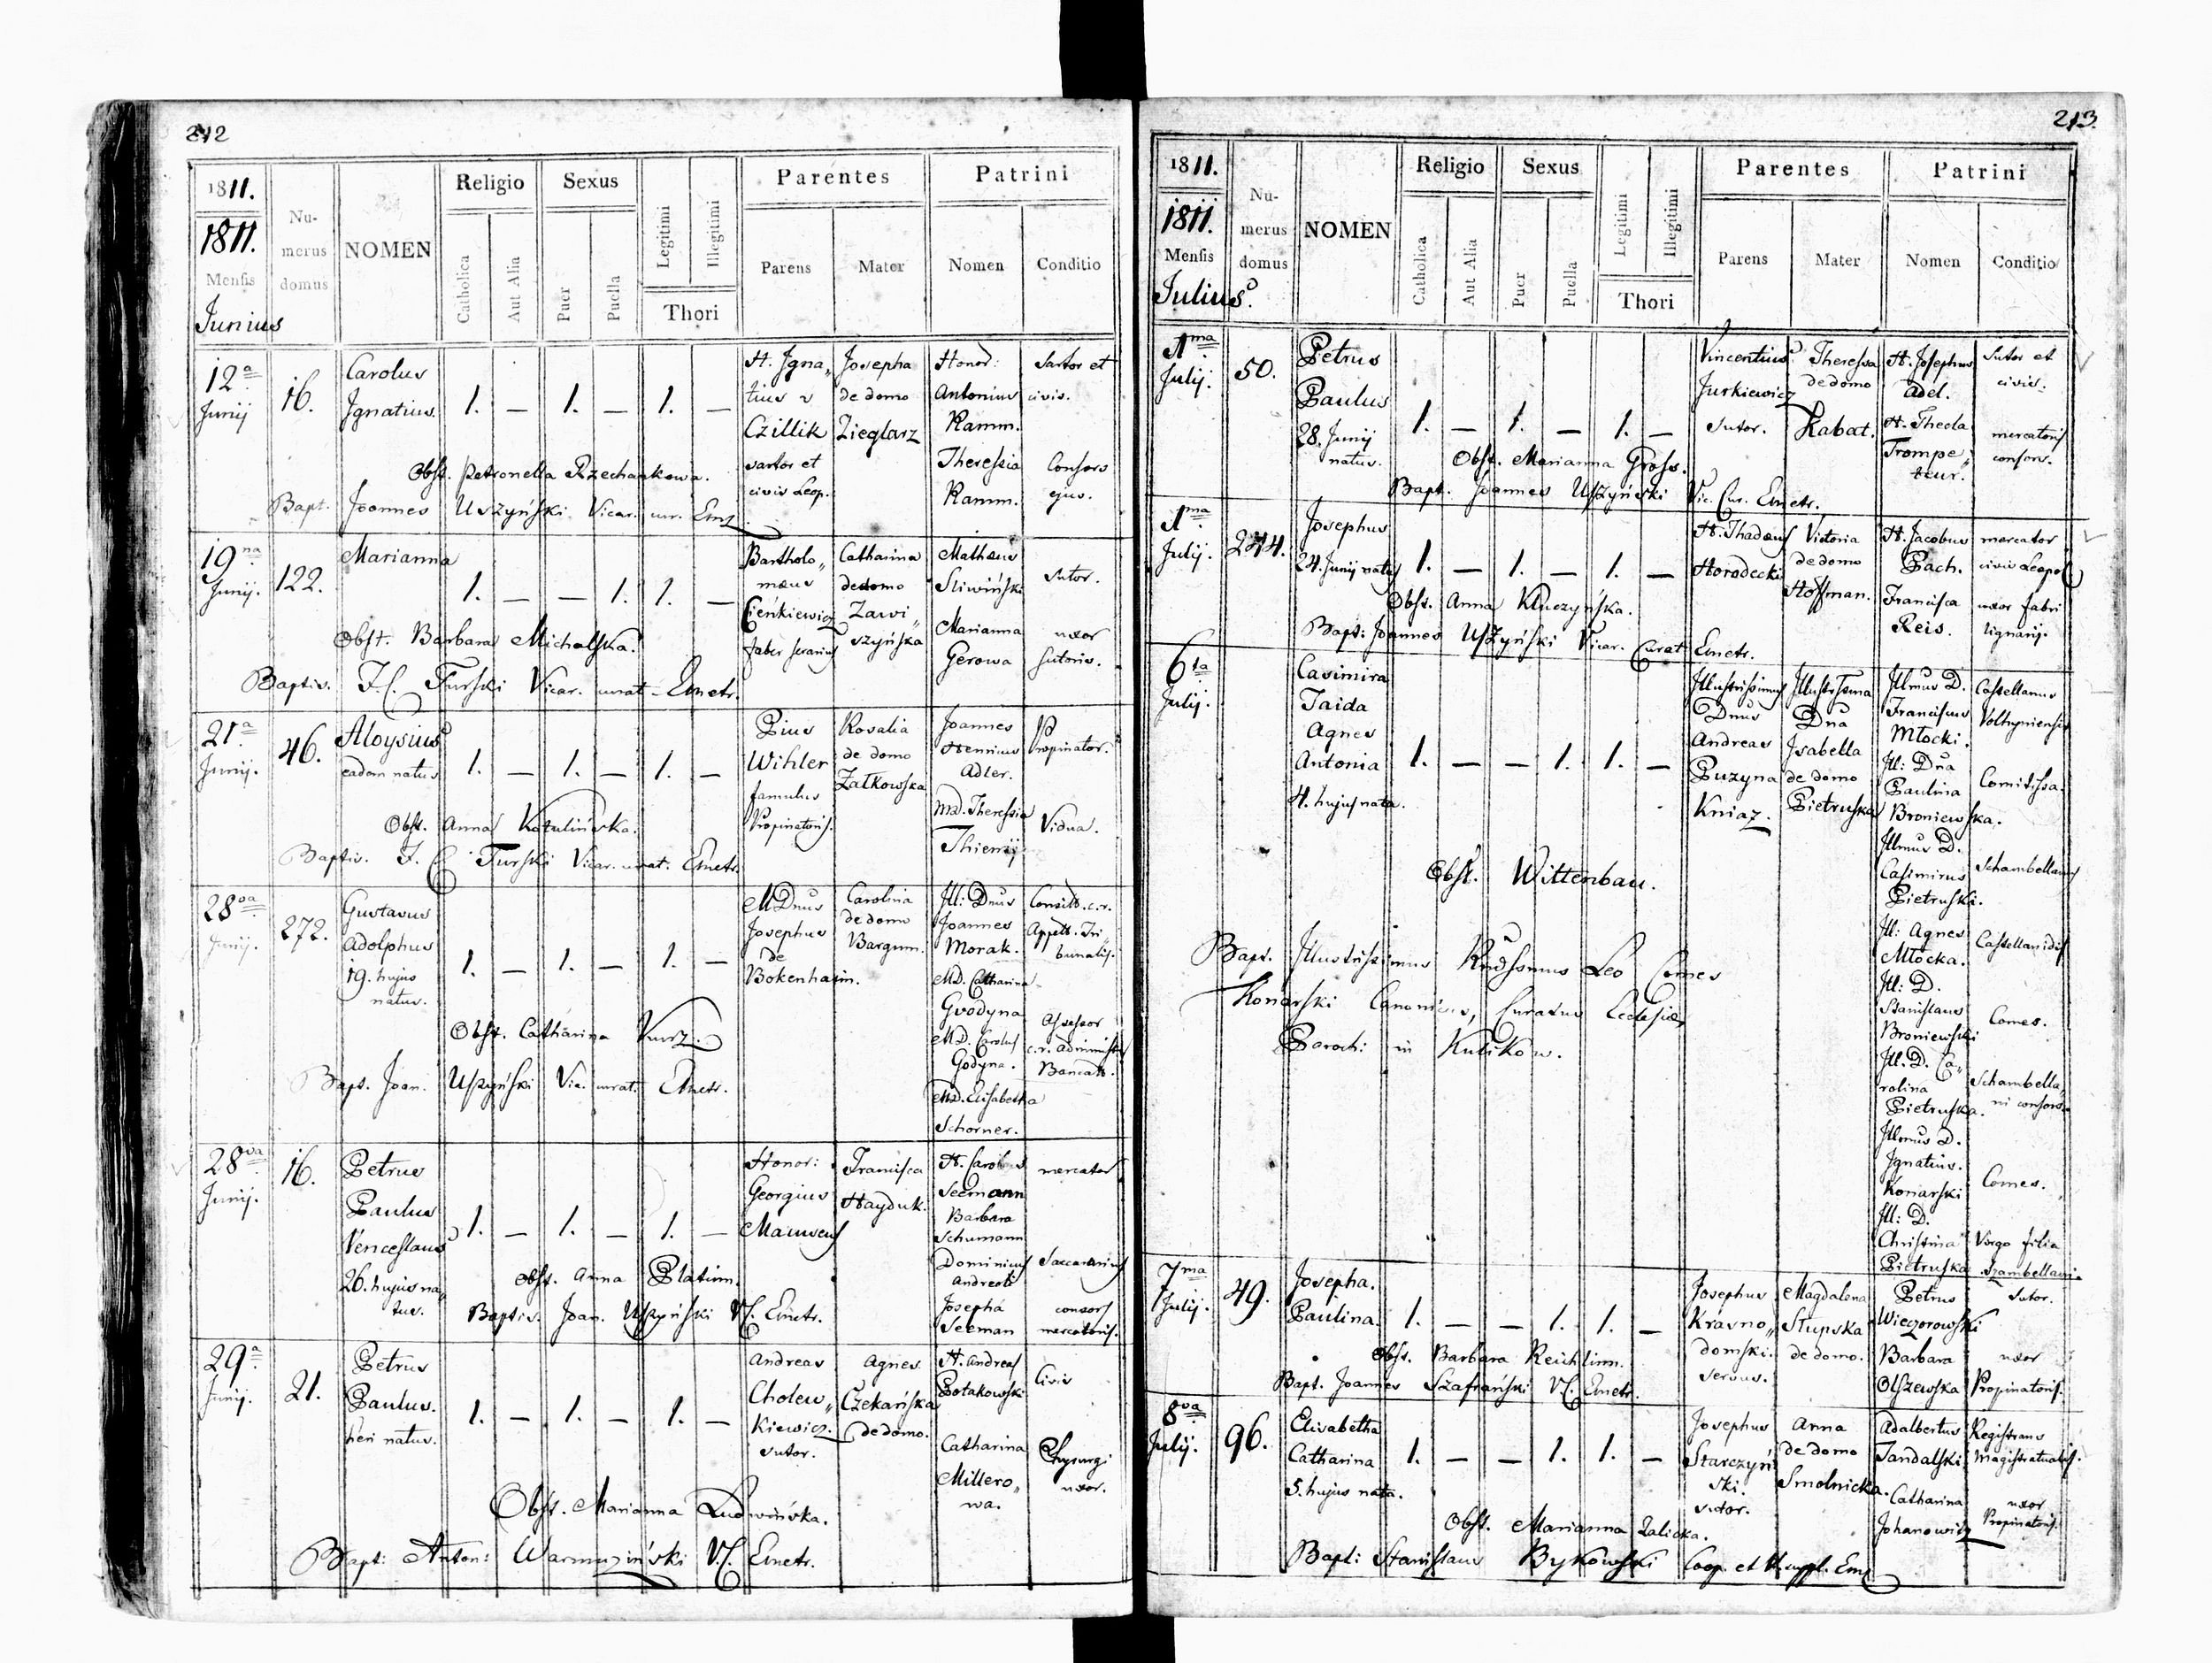 212
1811.
1811.
Mensis
Junius
Numerus domus
NOMEN
Religio
Catholica
Aut Alia
Sexus
Puer
Puella
Legitimi
Illegitimi
Thori
Parentes
Parens
Mater
Patrini
Nomen
Conditio
12a Junij
16.
Carolus
Ignatius.
1. — 1. — 1. —
H. Igna„
tius
Czillik
sartor et
civis Leop.
Josepha
de domo
Zieglarz
Honor:
Antonius
Ramm.
Theressia
Ramm.
Sartor et
civis.
Consors
ejus.
Obst. Petronella Rzechankowa.
Bapt. Joannes Uszyński Vicar. cur. Emz
19na Junij.
122.
Marianna
1. — — 1. 1. —
Bartholo„
mæus
Cieńkiewicz
faber serarius
Catharina
de domo
Zawi„
szyńska
Mathæus
Sliwiński
Marianna
Gerowa
Sutor.
uxor
sutoris.
Obst. Barbara Michalska.
Baptis. J.C. Turski Vicar. curat. Emetr.
21a Junij.
46.
Aloysius
eadem natus
1. — 1. — 1. —
Pius
Wihler
famulus
Propinatoris.
Rosalia
de domo
Zatkowska
Joannes
Hennius
Adler.
MD. Theressia
Thiemij
Propinator.
Vidua.
Obst. Anna Kozulińska.
Baptis. J. C. Turski Vicar. curat. Emetr.
28va Junij.
272.
Gustavus
Adolphus
19. hujus
natus.
1. — 1. — 1. —
MDnus
Josephus
de
Bokenhaim.
Carolina
de domo
Bargum.
Ill: Dnus
Joannes
Morak.
MD. Catharina
Gvodyna
MD. Carolus
Godyna.
MD. Elisabetha
Schorner.
Consilb. c.r.
Appell. Tri„
bunalis.
Assessor
c.r. administr.
Bancall.
Obst. Catharina Kurz.
Bapt. Joan. Uszyński Vic. curat. Emetr.
28va Junij.
16.
Petrus
Paulus
Venceslaus
26. hujus na„
tus.
1. — 1. — 1. —
Honor:
Georgius
Francisca
Hayduk.
H. Carolus
Seemann
Barbara
Schumann
Dominicus
Andreoli
Josepha
Seeman
mercator
consors
mercatoris.
Obst. Anna Platinn.
Baptis. Joan. Uszyński V.C. Emetr.
29a Junij.
21.
Petrus
Paulus.
heri natus.
1. — 1. — 1. —
Andreas
Cholew„
kiewicz.
sutor.
Agnes
Czekańska
de domo.
H. Andreas
Potakowski
Catharina
Millero„
wa.
Civis
Chyrurgi
uxor.
Obst. Marianna Ludwińska.
Bapt: Anton: Warmuziński V.C. Emetr.
213.
1811.
1811.
Mensis
Julius
Numerus domus
NOMEN
Religio
Catholica
Aut Alia
Sexus
Puer
Puella
Legitimi
Illegitimi
Thori
Parentes
Parens
Mater
Patrini
Nomen
Conditio
1ma Julij.
50.
Petrus
Paulus
28. Junij
natus.
1. — 1. — 1. —
Vincentius
Jurkiewicz
sutor.
Theressa
de domo
Rabat.
H. Josephus
Adel.
H. Thecla
Trompe„
teur.
Sutor et
civis.
mercatoris
consors.
Obst. Marianna Gross.
Bapt. Joannes Uszyński Vic. Cur. Emetr.
1ma Julij.
244.
Josephus
24. Junij natus
1. — 1. — 1. —
H. Thadæus
Horodecki
Victoria
de domo
Hoffman.
H. Jacobus
Pach.
Francisca
Reis.
mercator
civis Leopol
uxor fabri
lignarij.
Obst. Anna Kluczyńska.
Bapt: Joannes Uszyński Vicar. Curat. Emetr.
6ta Julij.
Casimira
Taida
Agnes
Antonia
4. hujus nata.
1. — — 1. 1. —
Illustrissimus
Dnus
Andreas
Puzyna
Kniaz.
Illustrissima
Dna
Isabella
de domo
Pietruska
Illmus D.
Franciscus
Młocki.
Ill: Dna
Paulina
Broniewska.
Illmus D.
Casimirus
Pietruski.
Ill: Agnes
Młocka.
Ill: D.
Stanislaus
Broniewski
Ill. D. Ca„
rolina
Pietruska.
Illmus D.
Ignatius.
Konarski
Ill: D.
Christina
Pietruska
Castellanus
Volhyniensis
Comitissa.
Schambellanus
Castellanidis
Comes.
Schambella„
ni consors.
Comes.
Virgo filia
Szambellani.
Obst. Wittenbau.
Bapt. Illustrissimus Rndssmus Leo Comes
Konarski Canonicus, Curatus Ecclesiæ
Paroch: in Kulikow.
7ma Julij.
49.
Josepha.
Paulina.
1. — — 1. 1. —
Josephus
Krasno„
domski.
servus.
Magdalena
Słupska
de domo.
Petrus
Wieczorowski
Barbara
Olszewska
Sutor.
uxor
Propinatoris.
Obst. Barbara Reichlinn.
Bapt. Joannes Szafrański V.C. Emetr.
8va Julij.
96.
Elisabetha
Catharina
5. hujus nata.
1. — — 1. 1. —
Josephus
Starczyń
ski.
sutor.
Anna
de domo
Smolnicka.
Adalbertus
Tandalski
Catharina
Johanowitz
Registrans
Magistratualis.
uxor
Propinatoris.
Obst. Marianna Zalicka.
Bapt: Stanislaus Bykowski Coop. et suppl. Em